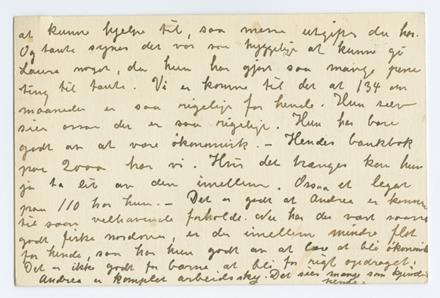 at kunne hjelpe til, saa mene utgifter du har.
Og tante synes det var saa hyggelig at kunne gi
Laura noget, da hun har gjort saa mange pene
ting til tante. Vi er komne til det at 134 om
maaneden er saa rigelig for hende. Hun selv
sier ossaa det er saa rigelig. Hun har bare
godt av at være økonomisk. – Hendes bankbok
paa 2000 har vi. Hvis det trænges kan hun
jo ta lit av den imellem. Ossaa et legat
paa 110 har hun. – Det er godt at Andrea er kommen
til saan velhavende forholde. Nu har du vært saa
godt, er du imellem mindre flot
for hende, saa har hun godt av at bli økonomisk
Det er ikke godt for barne at bli for rigt opdraget.
Andrea er komplet arbeidssky. Det sier mange som kjender
hende.